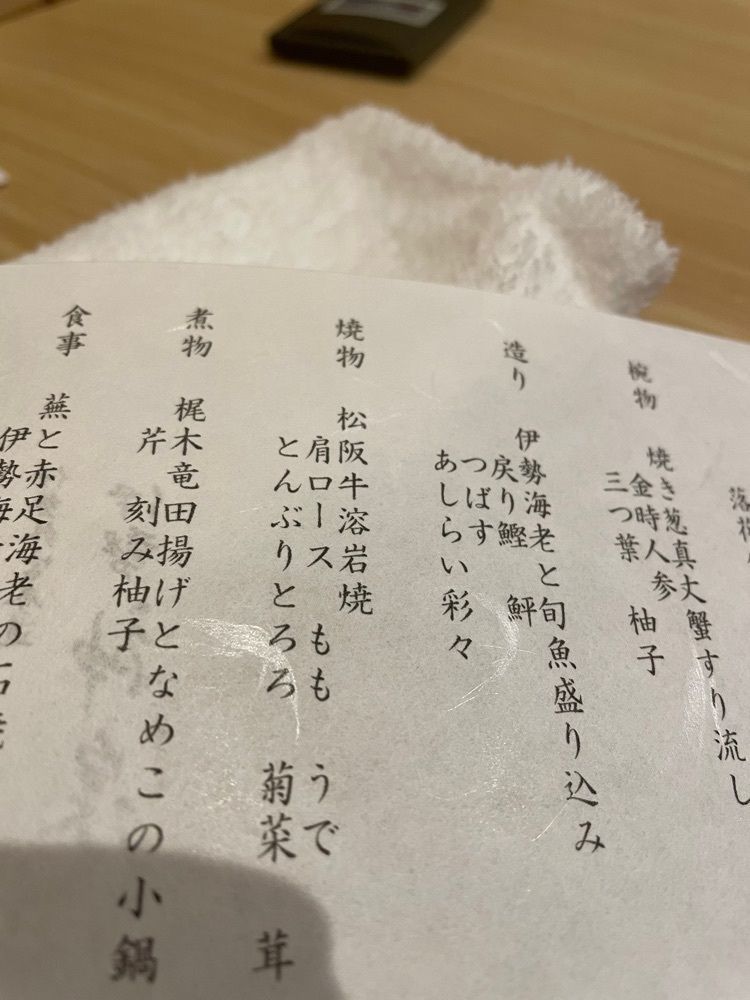 椀物
焼き葱真丈蟹すり流し
金時人参 柚子
三つ葉
造り
伊勢海老と旬魚盛り込み
戻り鰹 鮃
つばす
あしらい彩々
焼物
松阪牛溶岩焼
肩ロース もも うで
とんぶりとろろ 菊菜 茸
煮物
梶木竜田揚げとなめこの小鍋
芹 刻み柚子
食事
蕪と赤足海老の石焼
伊勢海